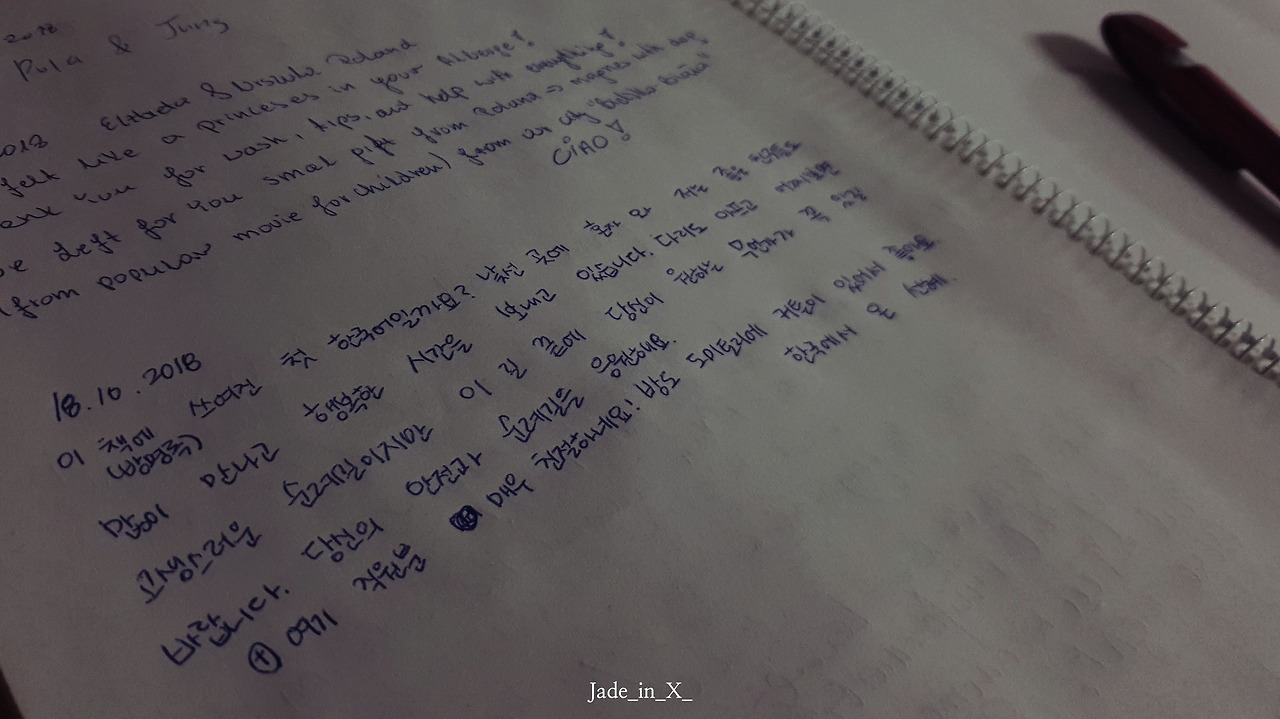 2018
Pula & Jung
2018 Elżbieta & Urszula Poland
felt like a princess in your Alberge!
Thank you for wash, tips, and help with everything!
We left for you small gift from Poland → magnes with dog
(from popular movie for children) from our city "Bielsko-Biała"
CIAO!
18.10.2018
이 책에 쓰여진 첫 한국어일까요? 낯선 곳에 혼자 와 저는 좋은 인연들도
(방명록)
많이 만나고 행복한 시간을 보내고 있습니다. 다리도 아프고
고생스러운 순례길이지만 이 길 끝에 당신이 원하는 무언가가 꼭 있길
바랍니다. 당신의 안전과 순례길을 응원해요.
⊕ 여기 직원분 매우 친절하네요! 방도 도미토리에 커튼이 있어서 좋아요
한국에서 온